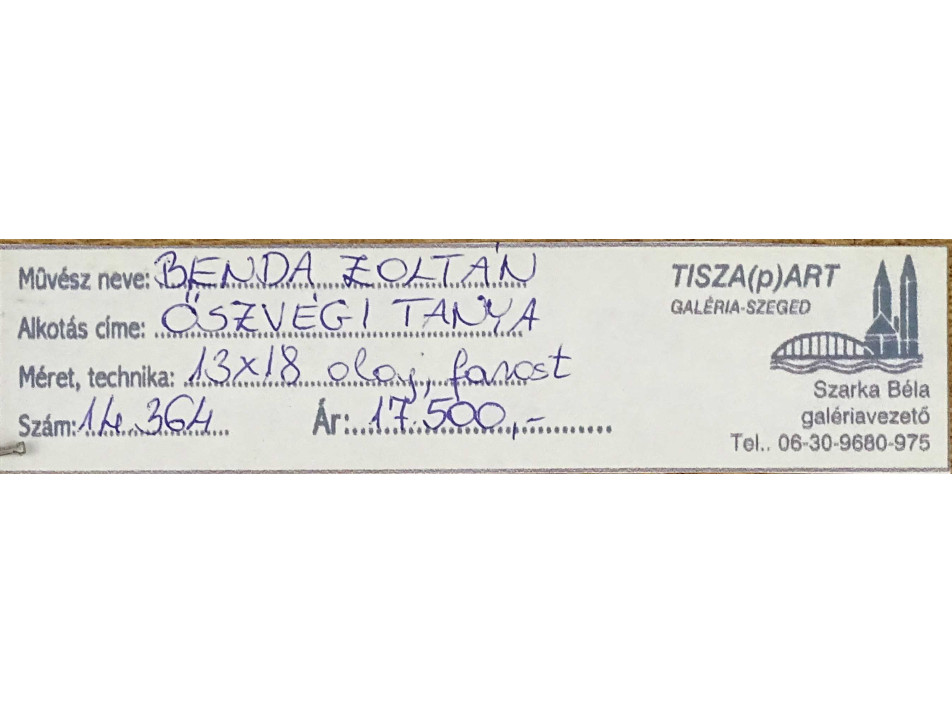 Művész neve: BENDA ZOLTÁN
Alkotás címe: ŐSZVÉGI TANYA
Méret, technika: 13x18 olaj, farost
Szám: 14.364 Ár: 17.500,-
TISZA(p)ART
GALÉRIA-SZEGED
Szarka Béla
galériavezető
Tel.. 06-30-9680-975